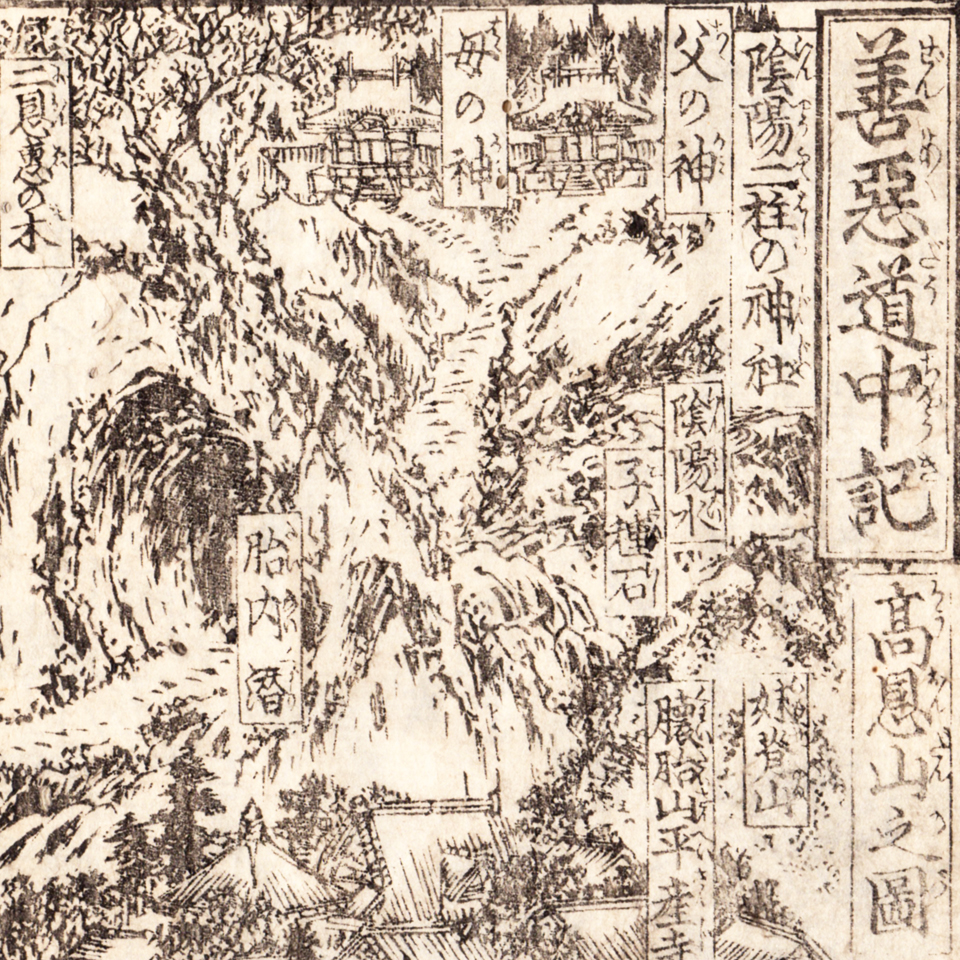 善惡道中記
髙恩山之圖
陰陽二柱の神社
父の神
母の神
陰陽水
子種石
胎内潜
妊登山
腰胎山平産寺
二恩惠の木